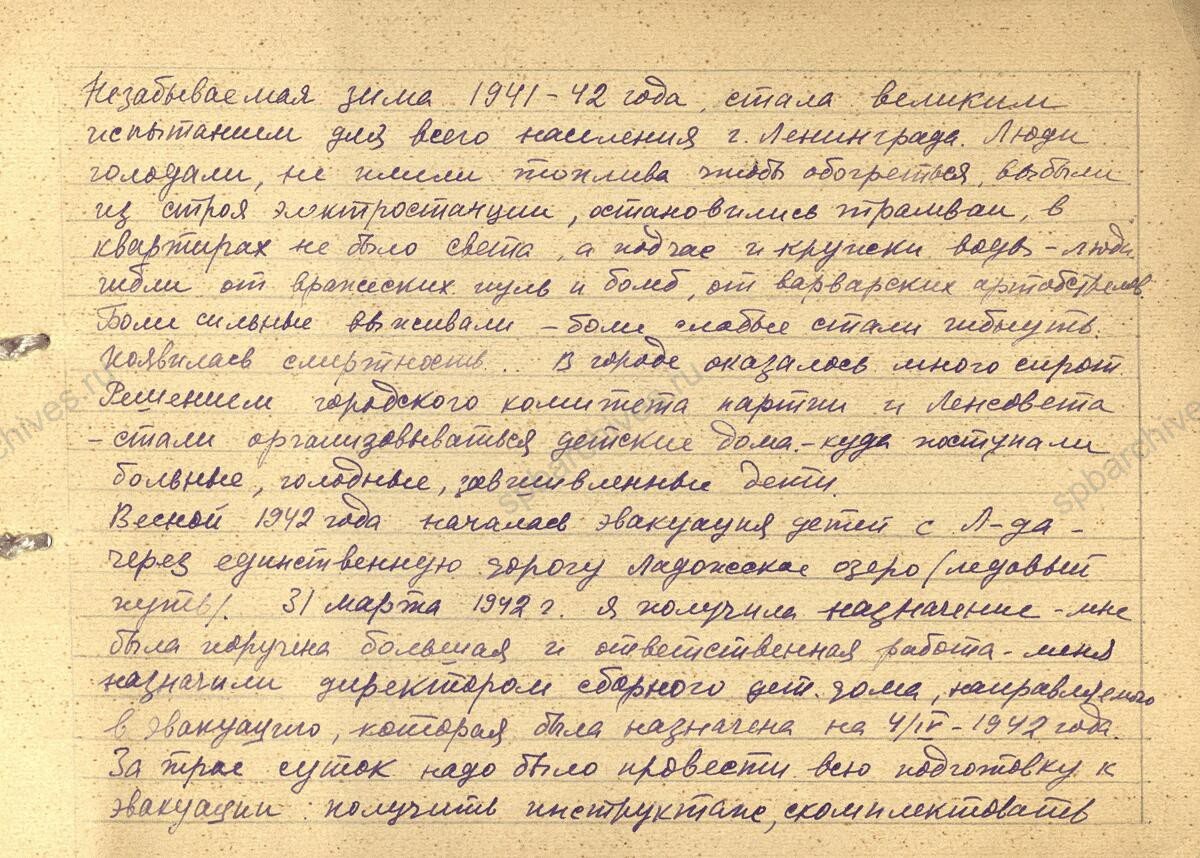 Незабываемая зима 1941-42 года, стала великим
испытанием для всего населения г. Ленинграда. Люди
голодали, не имели топлива чтобы обогреться, выбыли
из строя электростанции, остановились трамваи, в
квартирах не было света, а подчас и кружки воды - люди
гибли от вражеских пуль и бомб, от варварских артобстрелов.
Боли сильные выживали - боли слабые стали гибнуть.
Появилась смертность. В городе оказалось много сирот.
Решением городского комитета партии и Ленсовета
- стали организовываться детские дома - куда поступали
больные, голодные, завшивленные дети.
Весной 1942 года началась эвакуация детей с Л-да -
через единственную дорогу Ладожское озеро /ледовый
путь/. 31 марта 1942 г. я получила назначение - мне
была поручена большая и ответственная работа - меня
назначили директором сборного дет. дома, направляемого
в эвакуацию, которая была назначена на 4/IV - 1942 года.
За трое суток надо было провести всю подготовку к
эвакуации: получить инструктаж, скомплектовать
spbarchives.ru
spbarchives.ru
spbarchives.ru